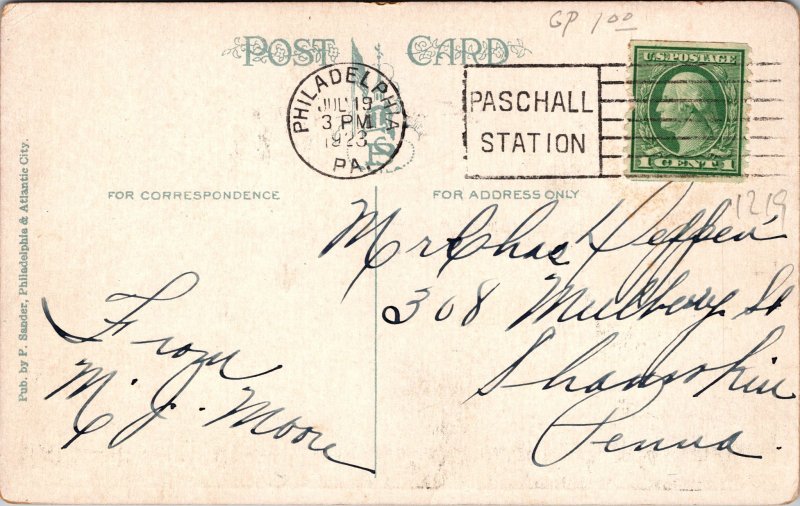 GP 1.00
POST CARD
PHILADELPHIA
JUL 19
3 PM
1923
PA.
PASCHALL
STATION
U.S. POSTAGE
1 CENT 1
FOR CORRESPONDENCE
FOR ADDRESS ONLY
1219
Mr Chas
308 Mulberry St
Shamokin
Penna.
From
M. J. Moore
Pub. by P. Sander, Philadelphia & Atlantic City.